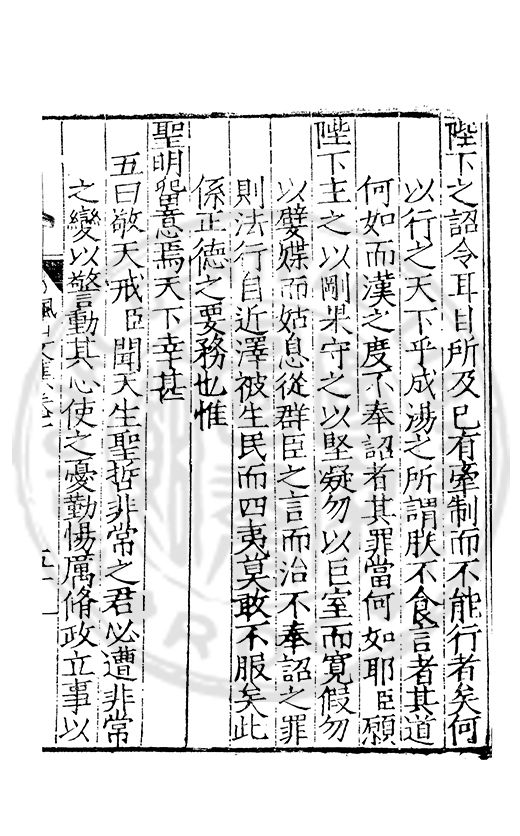 陛下之詔令耳目所及已有牽制而不能行者矣何
以行之天下乎成湯之所謂朕不食言者其道
何如而漢之度不奉詔者其罪當何如耶臣願
陛下主之以剛果守之以堅凝勿以巨室而寛假勿
以嬖媟而姑息從群臣之言而治不奉詔之罪
則法行自近澤被生民而四夷莫敢不服矣此
係正德之要務也惟
聖明留意焉天下幸甚
五曰敬天戒臣聞天生聖哲非常之君必遭非常
之變以警動其心使之憂勤惕厲脩政立事以